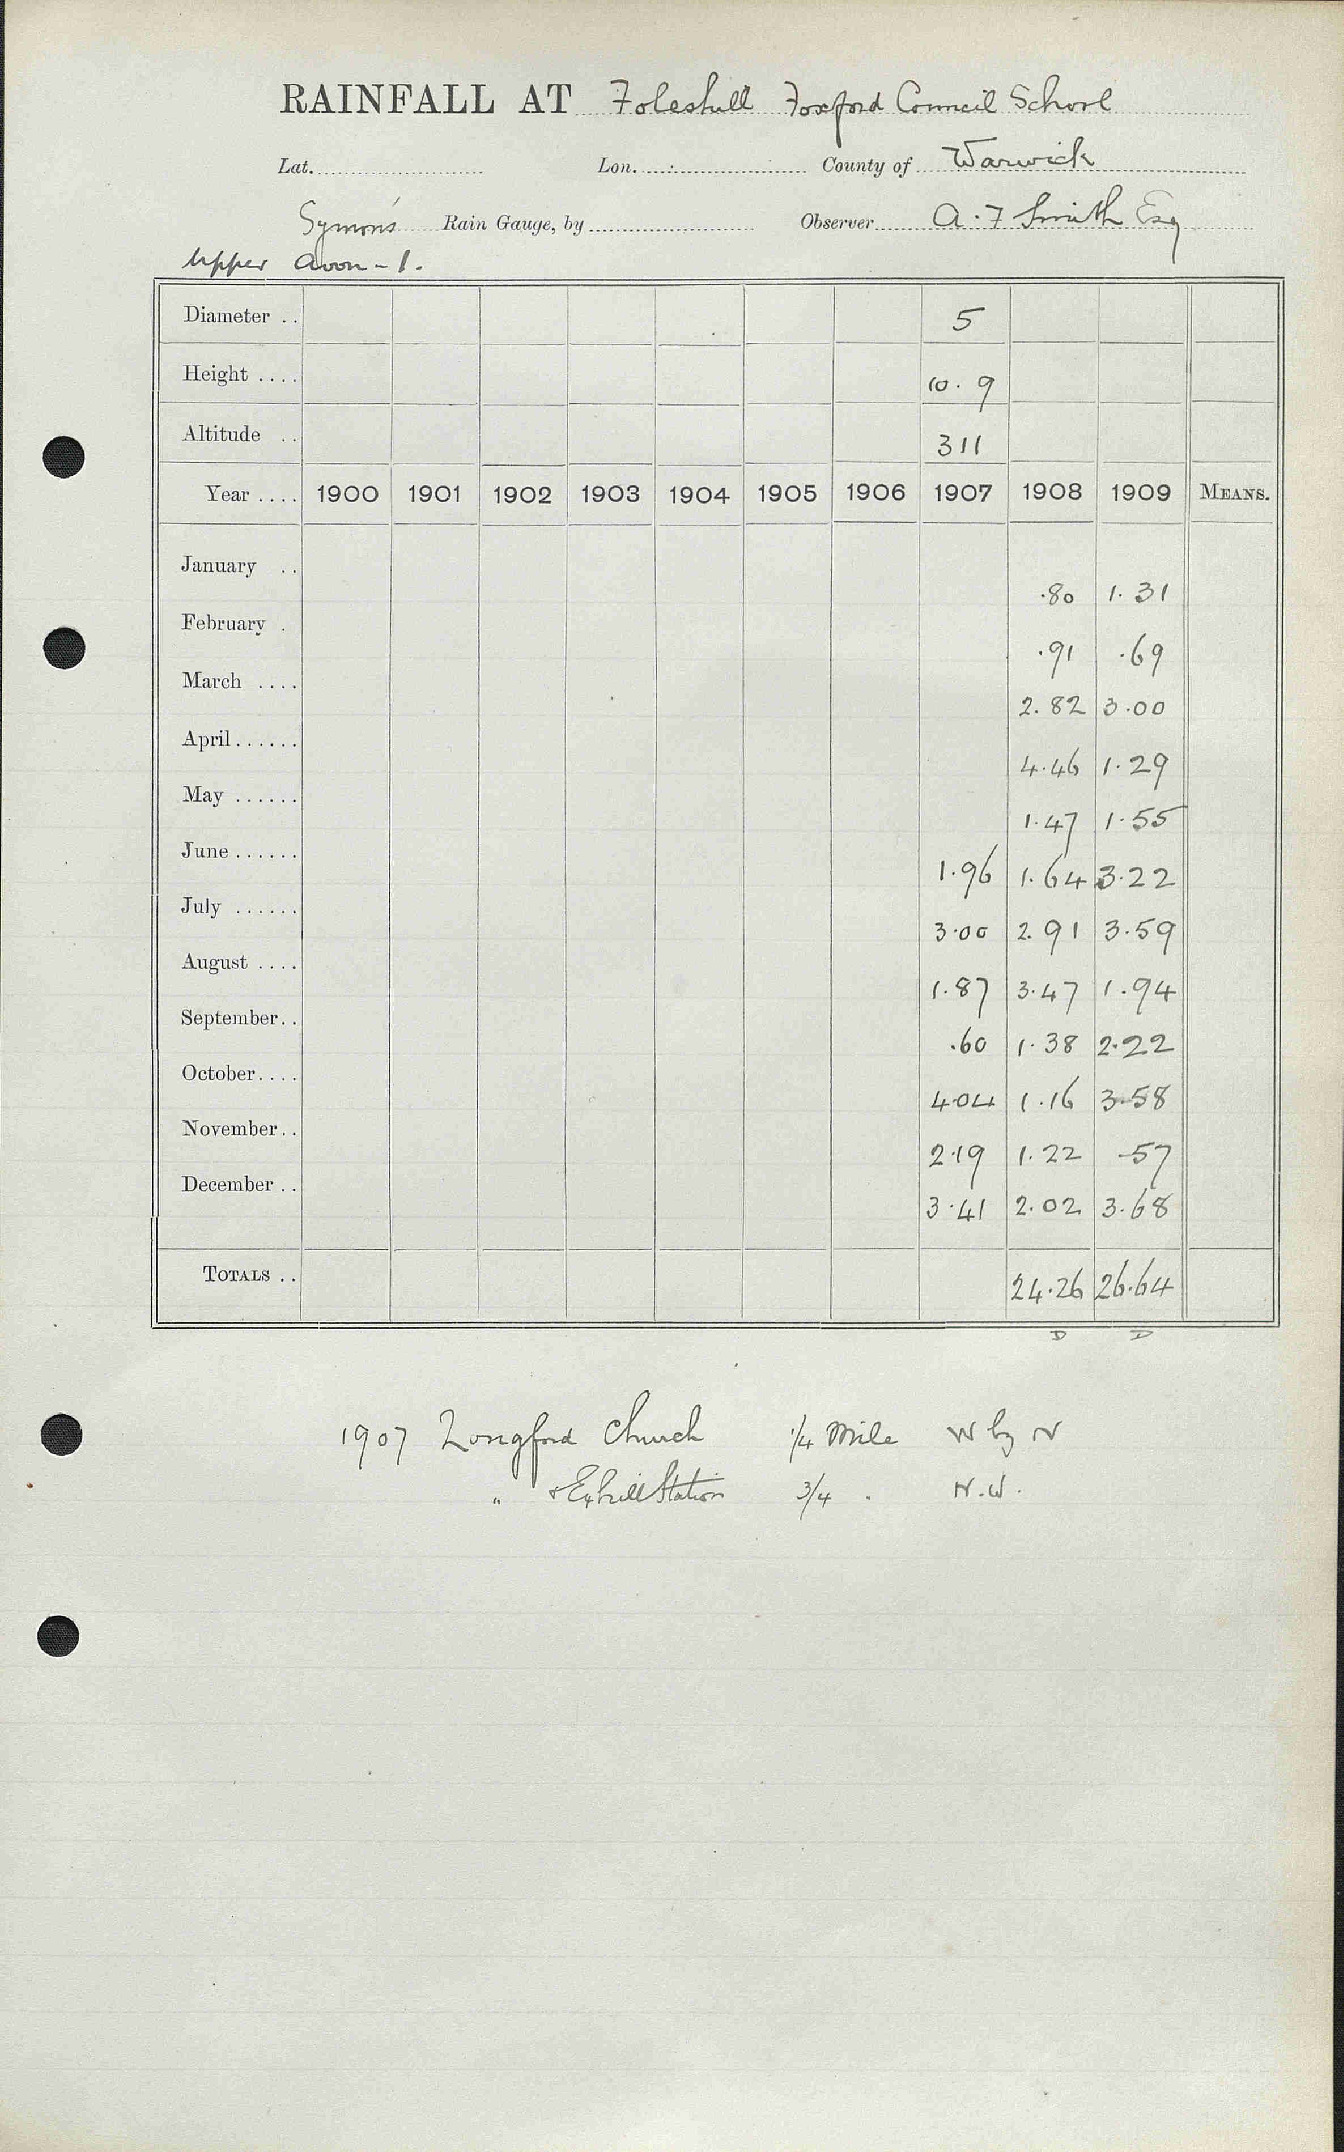 RAINFALL AT Foleshill Foxford Council School
Lat. Lon. County of Warwick
Symons Rain Gauge, by Observer A. F Smith Esq
Upper Avon - 1.
Diameter .. 5
Height .... 10. 9
Altitude .. 311
Year .... 1900 1901 1902 1903 1904 1905 1906 1907 1908 1909 MEANS.
January .. .80 1.31
February . .91 .69
March .... 2.82 3.00
April...... 4.46 1.29
May ...... 1.47 1.55
June...... 1.96 1.64 3.22
July ...... 3.00 2.91 3.59
August .... 1.87 3.47 1.94
September.. .60 1.38 2.22
October.... 4.04 1.16 3.58
November.. 2.19 1.22 .57
December .. 3.41 2.02 3.68
TOTALS .. 24.26 26.64
D D
1907 Longford Church 1/4 Mile W by N
" Station 3/4 . N.W.